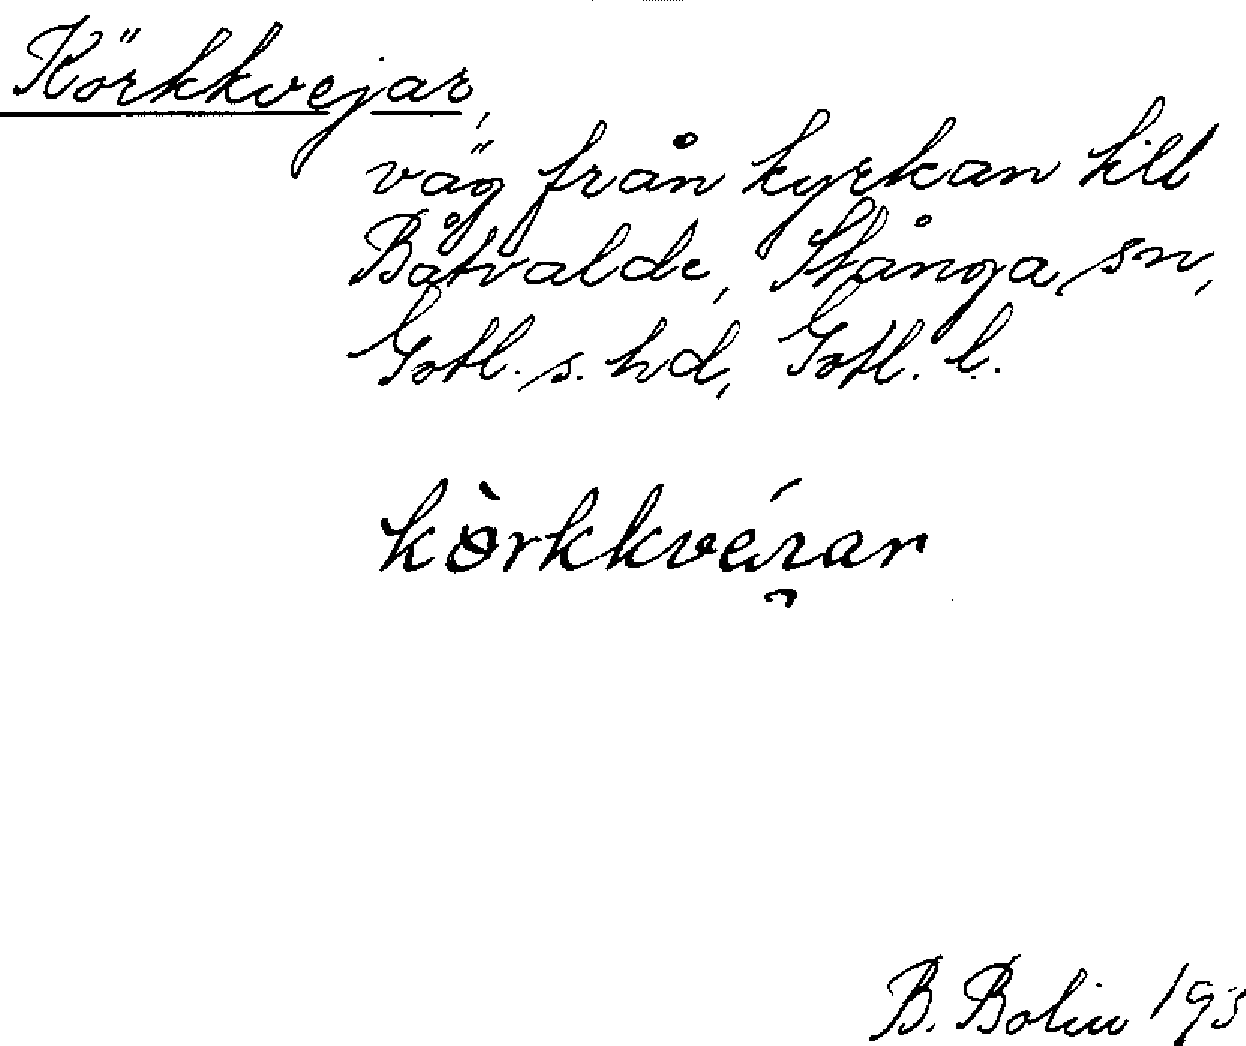 Körkkvejar,
väg från kyrkan till
Båtvalde, Stånga sn,
Gotl. s. hd, Gotl. l.
B. Bolin 193